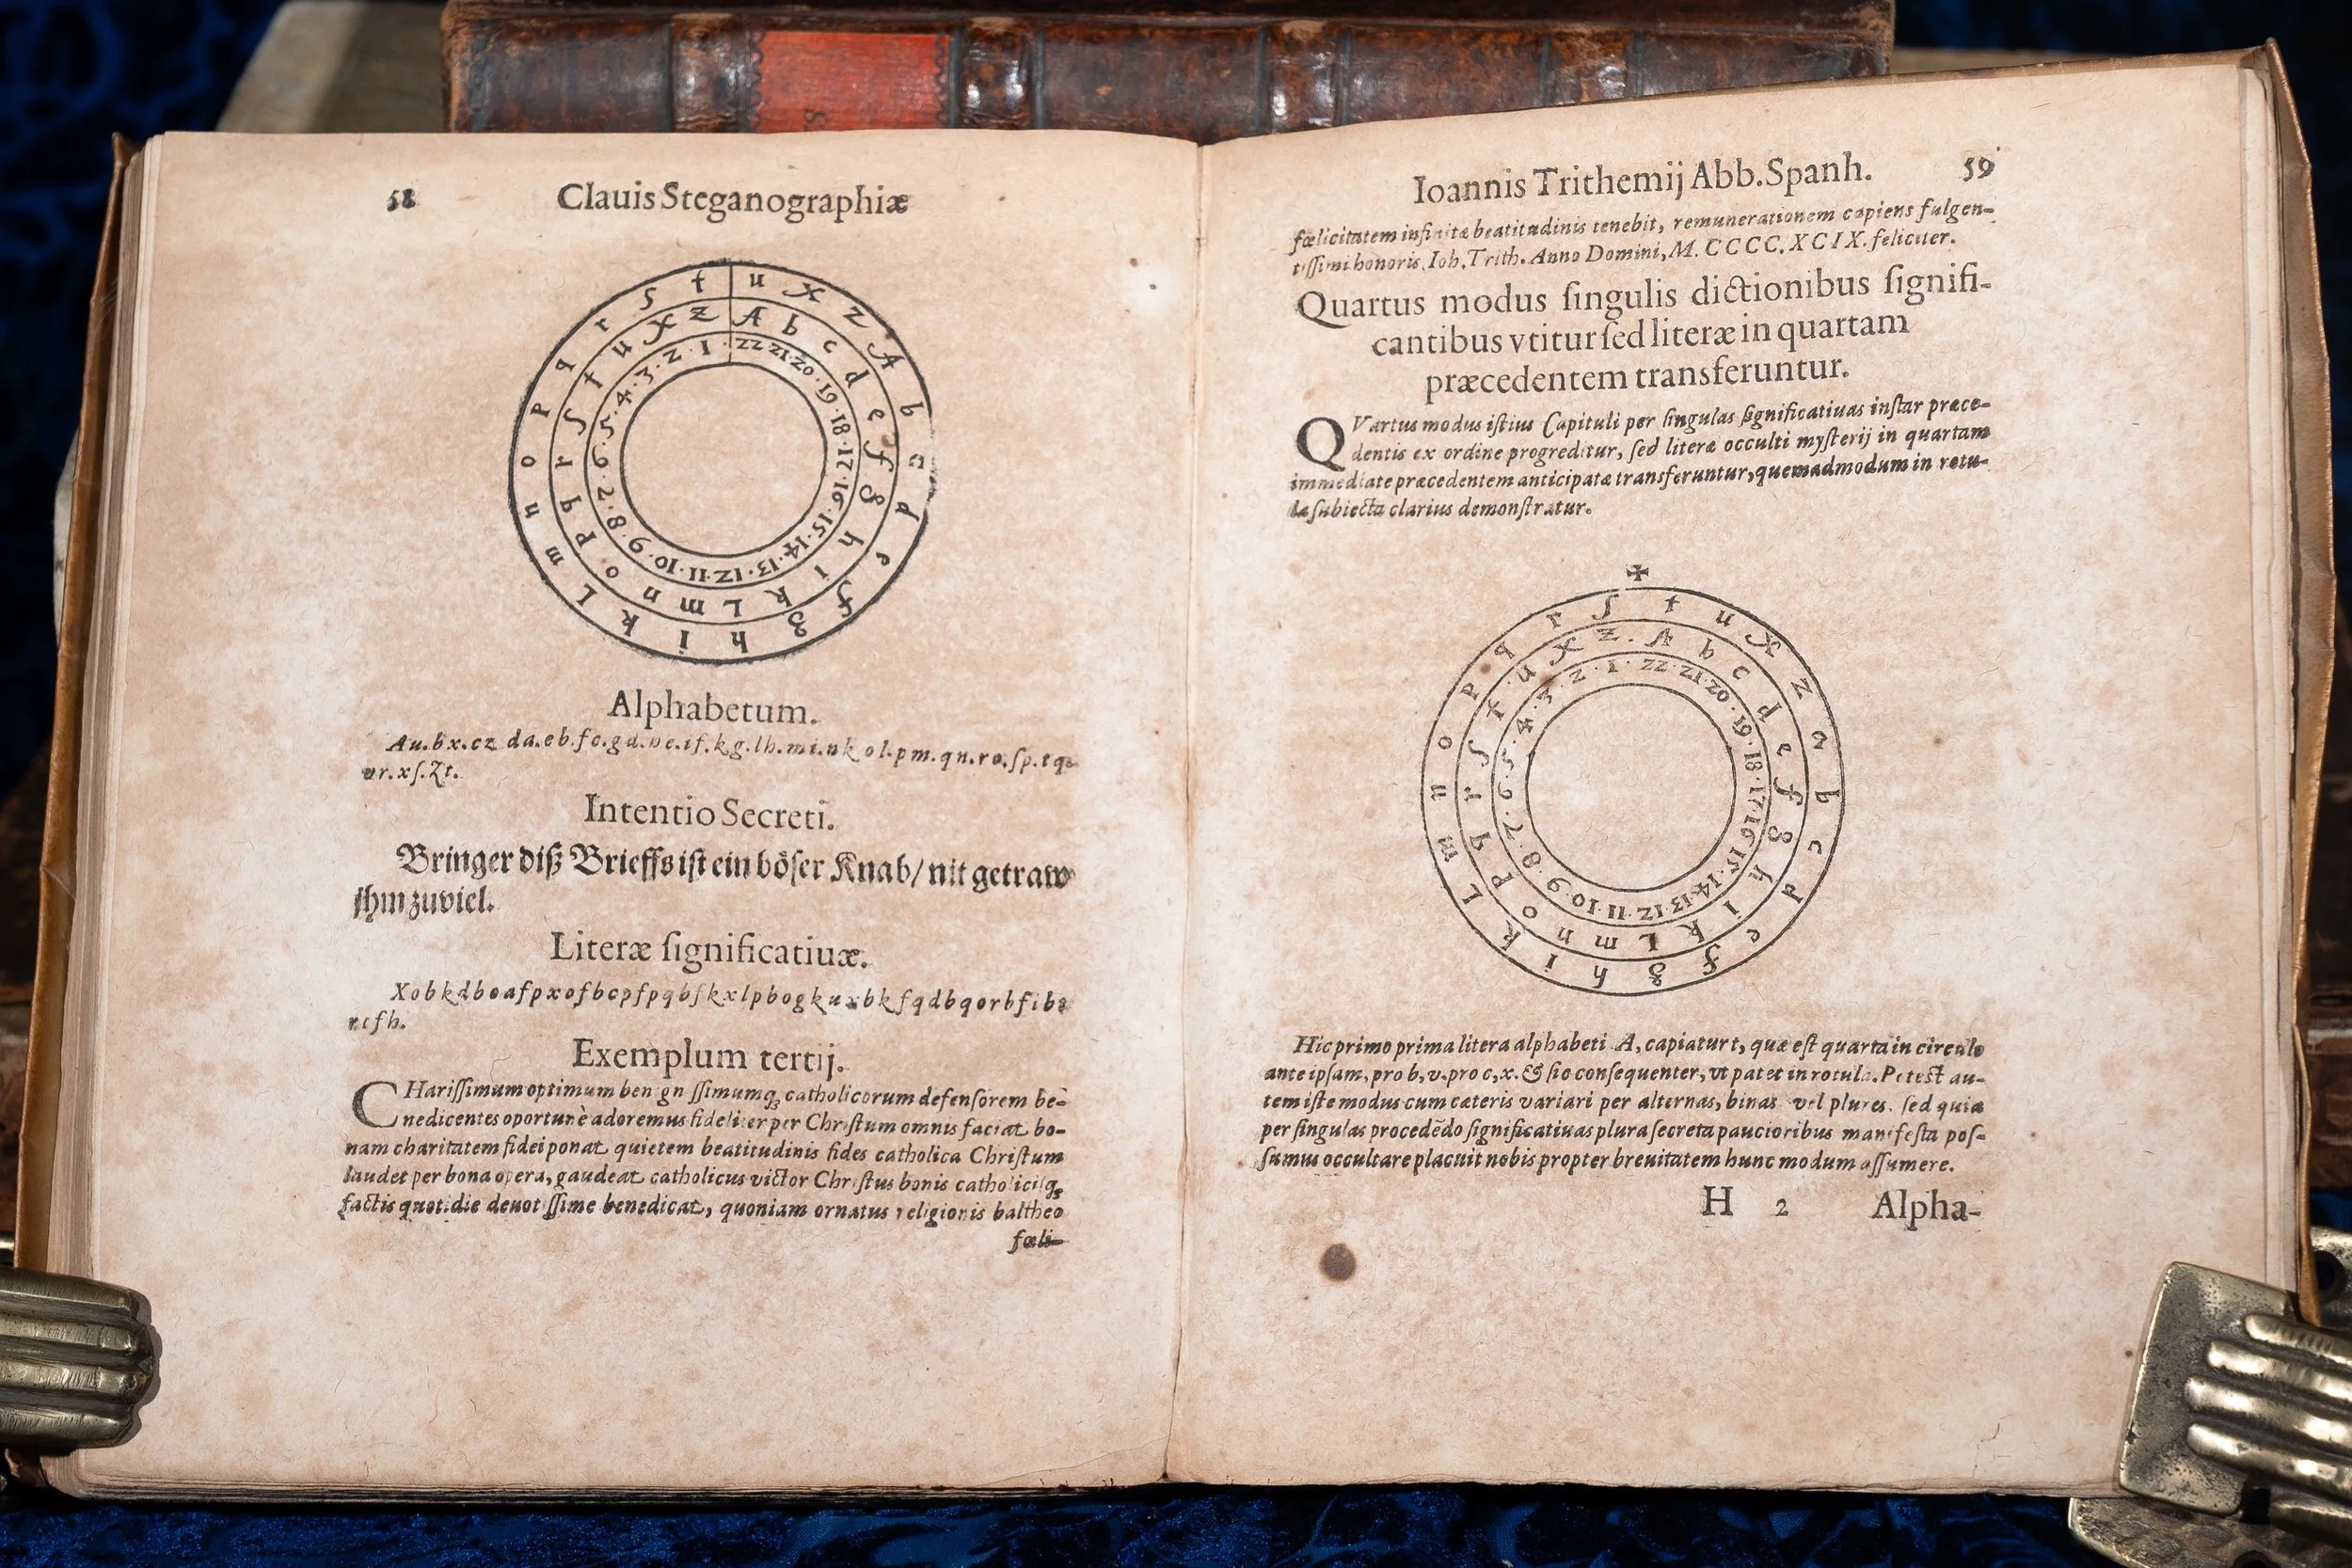 58 Clauis Steganographiæ
t u x z A b c d e f g h i k L m n o p q r ſ
z A b c d e f g h i k L m n o p q r ſ t u X
1 · 22 · 21 · 20 · 19 · 18 · 17 · 16 · 15 · 14 · 13 · 12 · 11 · 10 · 9 · 8 · 6 · 5 · 4 · 3 · 2
Alphabetum.
Au.bx.cz da.eb.fc.gd.he.if.kg.lh.mi.nk ol.pm.qn.ro.ſp.tq
ur.xſ.Zt.
Intentio Secreti.
Bringer diß Brieffs iſt ein böſer Knab/ nit getraw
jhm zuviel.
Literæ ſignificatiuæ.
Exemplum tertij.
CHariſſimum optimum benign ſſimumq́; catholicorum defenſorem be-
nedicentes oportunè adoremus fideliter per Chriſtum omnis faciat bo-
nam charitatem fidei ponat quietem beatitudinis fides catholica Chriſtum
laudet per bona opera, gaudeat catholicus victor Chriſtus bonis catholiciſq́;
factis quotidie deuot ſſime benedicat, quoniam ornatus religionis baltheo
fœli-
Ioannis Trithemij Abb. Spanh. 59
fœlicitatem infinitæ beatitudinis tenebit, remunerationem capiens fulgen-
tiſſimi honoris. Ioh. Trith. Anno Domini, M. CCCC. XCIX. feliciter.
Quartus modus ſingulis dictionibus ſignifi-
cantibus vtitur ſed literæ in quartam
præcedentem transferuntur.
QVartus modus iſtius Capituli per ſingulas ſignificatiuas inſtar præce-
dentis ex ordine progreditur, ſed literæ occulti myſterij in quartam
immediate præcedentem anticipatæ transferuntur, quemadmodum in rotu-
la ſubiecta clarius demonſtratur.
✠
t u X z a b c d e f g h i k L m n o p q r ſ
A b c d e f g h i k L m n o p q r ſ t u X z
22 · 21 · 20 · 19 · 18 · 17 · 16 · 15 · 14 · 13 · 12 · 11 · 10 · 9 · 8 · 7 · 6 · 5 · 4 · 3 · 2 · 1
Hic primo prima litera alphabeti A, capiatur t, quæ eſt quarta in circulo
ante ipſam, pro b, v. pro c, x. & ſic conſequenter, vt patet in rotula. Poteſt au-
tem iſte modus cum cæteris variari per alternas, binas vel plures. ſed quia
per ſingulas procedēdo ſignificatiuas plura ſecreta paucioribus manifeſta poſ-
ſumus occultare placuit nobis propter breuitatem hunc modum aſſumere.
H 2 Alpha-